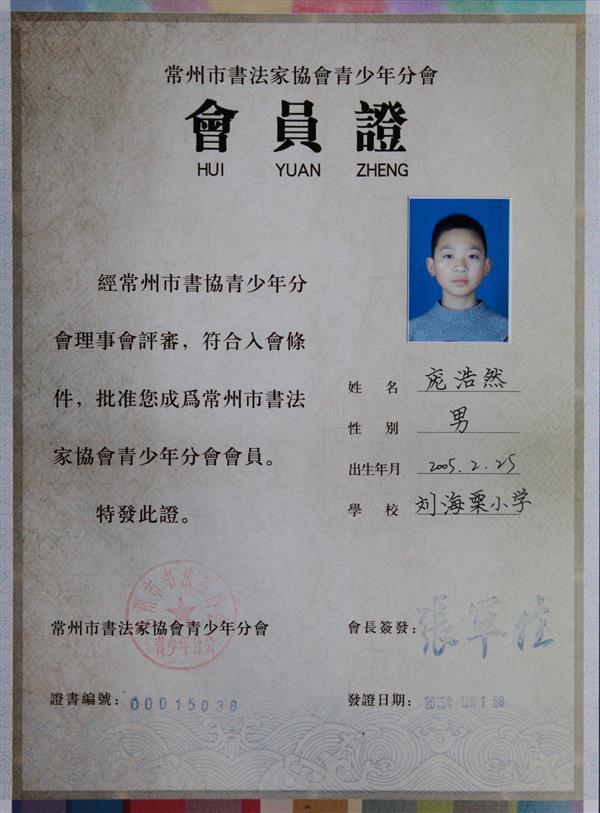 常州市書法家協會青少年分會
會員證
HUI YUAN ZHENG
經常州市書協青少年分
會理事會評審，符合入會條
件，批准您成爲常州市書法
家協會青少年分會會員。
特發此證。
姓名 庞浩然
性別 男
出生年月 2005.2.25
學校 刘海粟小学
常州市书法家协会
青少年分会
常州市書法家協會青少年分會
會長簽發：
證書編號：00015038
發證日期：2015年12月1日